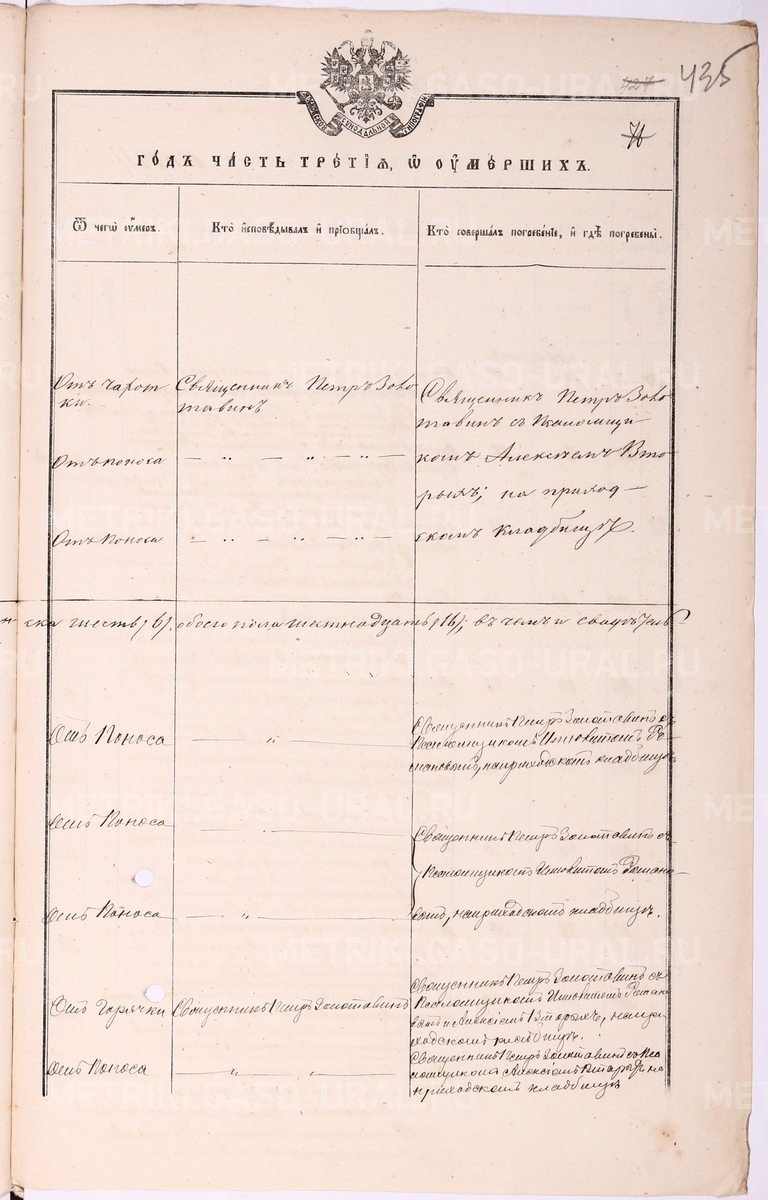 427 435
МОСКОВСКОЙ СѴНОДАЛЬНОЙ ТИПОГРАФІИ
76
ГОДЪ ЧАСТЬ ТРЕТІѦ, Ѿ ОУМЕРШИХЪ.
Ѿ чегѡ оумеръ.
Кто исповѣдывалъ и прїобщалъ.
Кто совершалъ погребенїе, и гдѣ погребены.
Отъ чахот
ки.
Священникъ Петръ Золо
тавинъ
Священникъ Петръ Золо
тавинъ съ Псаломщи
Отъ поноса
— „ — „ — „ —
комъ Алексѣемъ Вто
рыхъ; на приход-
Отъ Поноса
— „ — „ — „ —
скомъ кладбищѣ.
ска шесть /6/. обоего пола шестнадцать /16/; въ чемъ и свидѣтель
Отъ Поноса
— „ —
Священникъ Петръ Золотавинъ съ
Псаломщикомъ Ро-
мановымъ, на приходскомъ кладбищѣ
Отъ Поноса
— „ —
Священникъ Петръ Золотавинъ съ
Псаломщикомъ Романо-
Отъ Поноса
— „ —
вымъ, на приходскомъ кладбищѣ.
Отъ Горячки
Священникъ Петръ Золотавинъ
Священникъ Петръ Золотавинъ съ
Псаломщикомъ Романо
вымъ и Алексіемъ Вторыхъ, на при
ходскомъ кладбищѣ.
Отъ Поноса
„ „
Священникъ Петръ Золотавинъ съ Пса
ломщикомъ Алексіемъ Вторыхъ на
приходскомъ кладбищѣ
METRIKI.GASO-URAL.RU